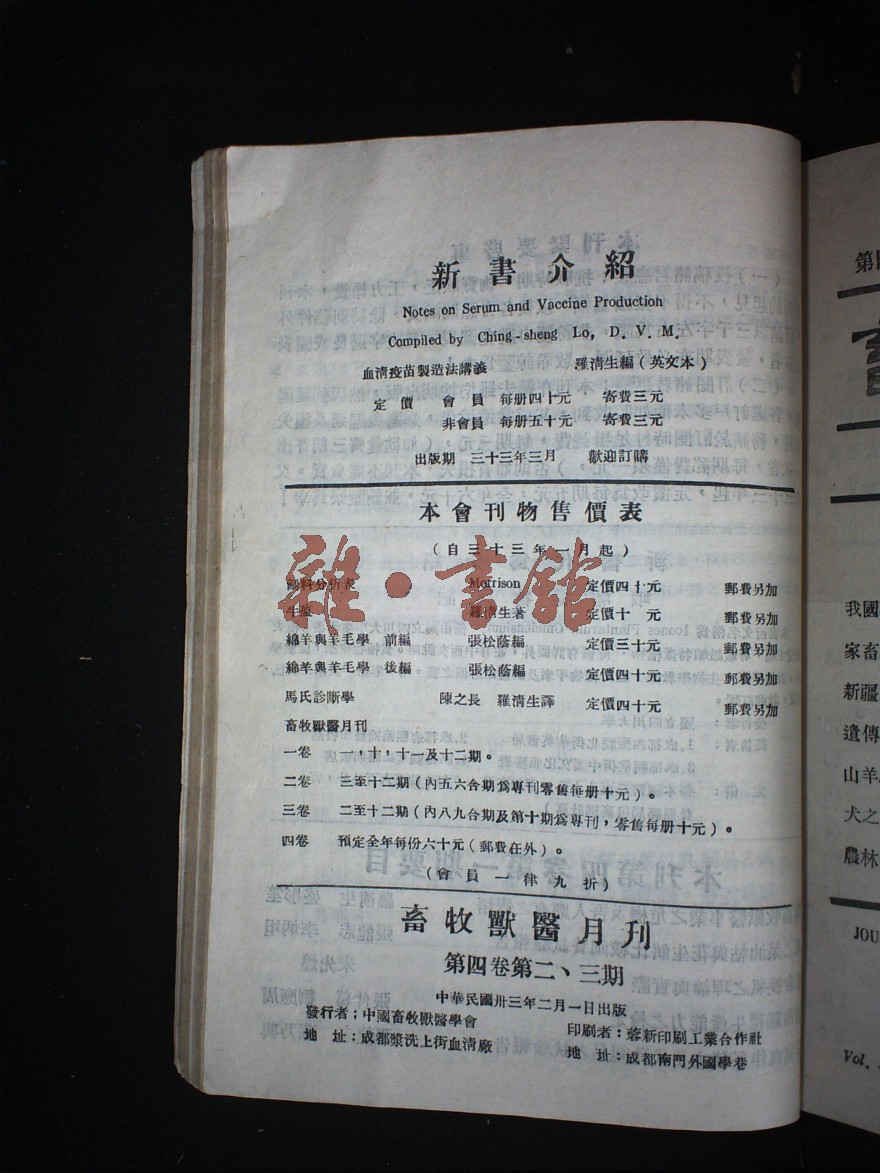 新書介紹
Notes on Serum and Vaccine Production
Compiled by Ching-sheng Lo, D. V. M.
血清疫苗製造法講義 羅清生編(英文本)
定價 會員 每册四十元 寄費三元
非會員 每册五十元 寄費三元
出版期 三十三年三月 歡迎訂購
本會刊物售價表
(自三十三年一月起)
飼料分析表 Morrison 定價四十元 郵費另加
羅清生著 定價十 元 郵費另加
綿羊與羊毛學 前編 張松蔭編 定價三十元 郵費另加
綿羊與羊毛學 後編 張松蔭編 定價四十元 郵費另加
馬氏診斷學 陳之長 羅清生譯 定價四十元 郵費另加
畜牧獸醫月刊
一卷 一,十,十一及十二期。
二卷 三至十二期(內五六合期為專刊零售每册十元)。
三卷 二至十二期(內八九合期及第十期為專刊,零售每册十元)。
四卷 預定全年每份六十元(郵費在外)。
(會員一律九折)
畜牧獸醫月刊
第四卷第二、三期
中華民國卅三年二月一日出版
發行者:中國畜牧獸醫學會
地 址:成都漿洗上街血清廠
印刷者:蓉新印刷工業合作社
地 址:成都南門外國學巷
雜·書館
我國
家畜
新疆
遺傳
山羊
犬之
農林
JOU
Vol.